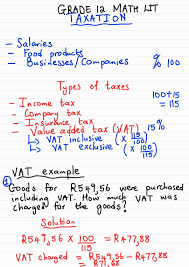 GRADE 12 MATH LIT
TAXATION
- Salaries
- Food products
- Businesses/Companies % 100
Types of taxes
- Income tax 100+15
= 115
- Company tax
- Insurance tax
- Value added tax (VAT) 15%
↳ VAT inclusive (× 115/100)
↳ VAT exclusive (× 100/115)
VAT example
Goods for R549,56 were purchased
including VAT. How much VAT was
charged for the goods?
Solution
R549,56 × 100/115 = R477,88
VAT charged = R549,56 - R477,88
= R71,68